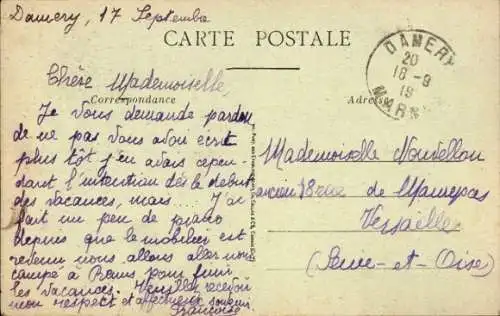 Damery, 17 Septembre
CARTE POSTALE
DAMERY
20
18 - 9
19
MARNE
Chère Mademoiselle
Correspondance
Adresse
Je vous demande pardon
de ne pas vous avoir écrit
plus tôt j'en avais cepen-
dant l'intention dès le début
des vacances, mais.... J'ai
fait un peu de piano
depuis que le mobilier est
revenu nous allons aller nous
campé à Reims pour finir
les vacances. Veuillez recevoir
mon respect et affectueux souvenir
Françoise
Mademoiselle Nouvellon
ancien 18 rue de Maurepas
Versailles
(Seine-et-Oise)